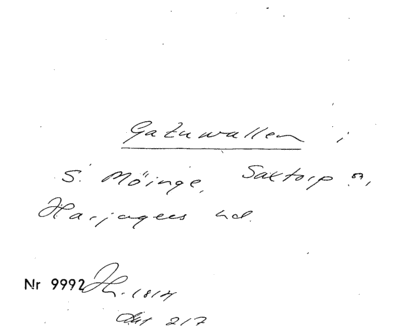 Gatuvallen i
S. Möinge, Saxtorp sn,
Harjagers hd.
Nr 9992
217